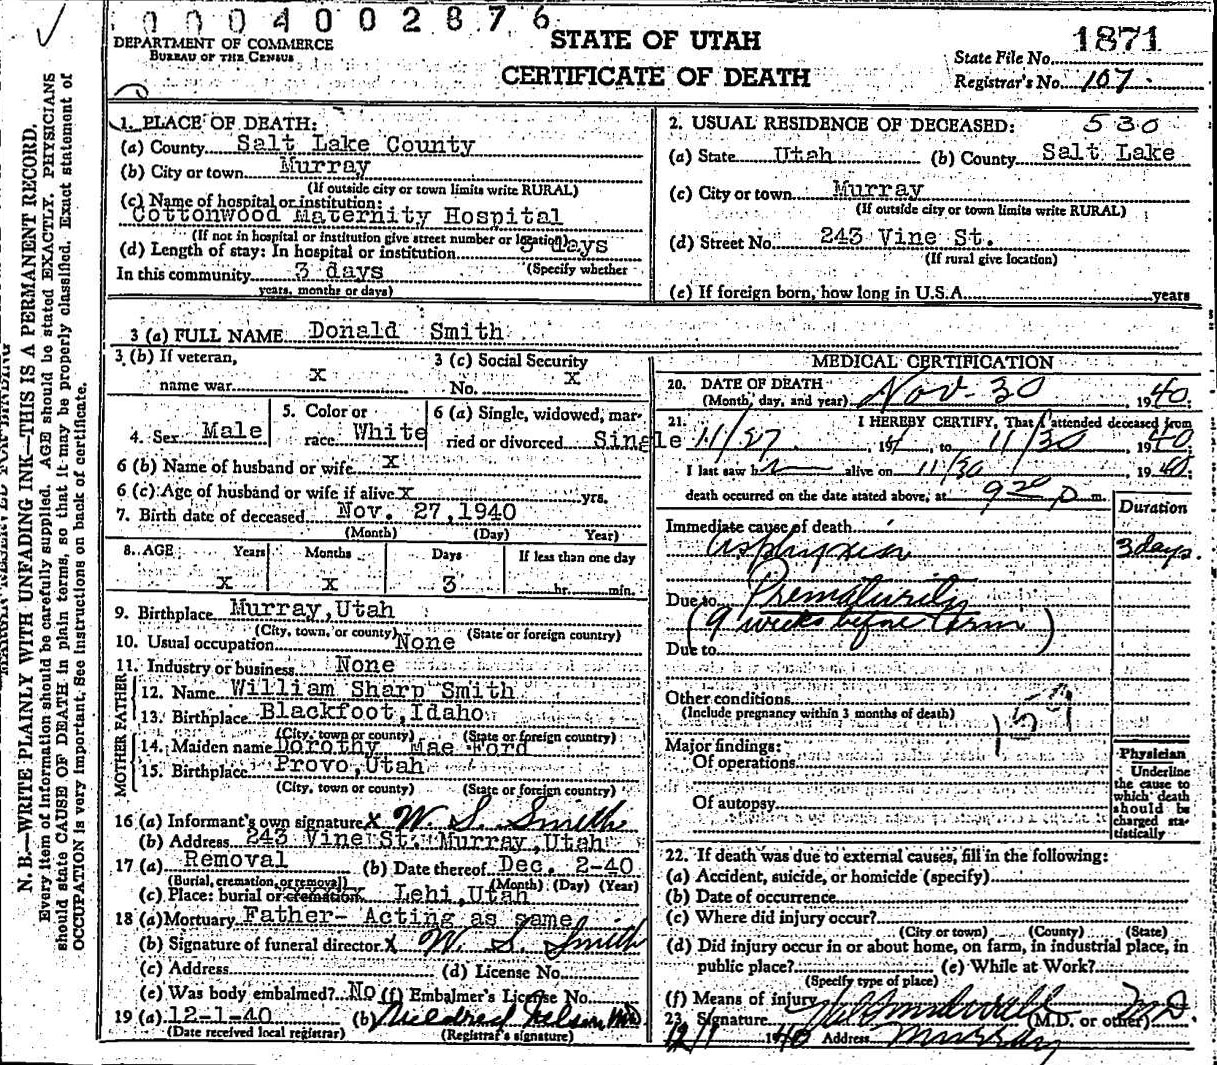 0004002876
DEPARTMENT OF COMMERCE
BUREAU OF THE CENSUS
STATE OF UTAH
CERTIFICATE OF DEATH
1871
State File No.
Registrar's No. 107
N. B.—WRITE PLAINLY WITH UNFADING INK—THIS IS A PERMANENT RECORD.
Every item of information should be carefully supplied. AGE should be stated EXACTLY. PHYSICIANS
should state CAUSE OF DEATH in plain terms, so that it may be properly classified. Exact statement of
OCCUPATION is very important. See instructions on back of certificate.
1. PLACE OF DEATH:
(a) County Salt Lake County
(b) City or town Murray
(If outside city or town limits write RURAL)
(c) Name of hospital or institution:
Cottonwood Maternity Hospital
(If not in hospital or institution give street number or location)
(d) Length of stay: In hospital or institution 3 days
In this community 3 days (Specify whether
years, months or days)
2. USUAL RESIDENCE OF DECEASED: 530
(a) State Utah (b) County Salt Lake
(c) City or town Murray
(If outside city or town limits write RURAL)
(d) Street No. 243 Vine St.
(If rural give location)
(e) If foreign born, how long in U.S.A. years
3 (a) FULL NAME Donald Smith
3 (b) If veteran,
name war X
3 (c) Social Security
No. X
4. Sex Male
5. Color or
race White
6 (a) Single, widowed, mar-
ried or divorced Single
6 (b) Name of husband or wife X
6 (c) Age of husband or wife if alive X yrs.
7. Birth date of deceased Nov. 27, 1940
(Month) (Day) Year)
8. AGE Years Months Days If less than one day
X X 3 hr. min.
9. Birthplace Murray, Utah
(City, town, or county) (State or foreign country)
10. Usual occupation None
11. Industry or business None
FATHER
12. Name William Sharp Smith
13. Birthplace Blackfoot, Idaho
(City, town or county) (State or foreign country)
MOTHER
14. Maiden name Dorothy Mae Ford
15. Birthplace Provo, Utah
(City, town or county) (State or foreign country)
16 (a) Informant's own signature X W. S. Smith
(b) Address 243 Vine St. Murray, Utah
17 (a) Removal (b) Date thereof Dec. 2-40
(Burial, cremation, or removal) (Month) (Day) (Year)
(c) Place: burial or cremation Lehi, Utah
18 (a) Mortuary Father- Acting as same
(b) Signature of funeral director X W. S. Smith
(c) Address (d) License No.
(e) Was body embalmed? No (f) Embalmer's License No.
19 (a) 12-1-40 (b) Mildred Nelson
(Date received local registrar) (Registrar's signature)
MEDICAL CERTIFICATION
20. DATE OF DEATH
(Month, day, and year) Nov. 30 1940.
21. I HEREBY CERTIFY, That I attended deceased from
11/27, 19 to 11/30, 1940
I last saw h alive on 11/30 1940.
death occurred on the date stated above, at 9 20 p m.
Duration
Immediate cause of death
Asphyxia 3 days.
Due to Prematurity
(9 weeks before term)
Due to
Other conditions
(Include pregnancy within 3 months of death)
159
Major findings:
Of operations
Of autopsy
Physician
Underline
the cause to
which death
should be
charged sta-
tistically
22. If death was due to external causes, fill in the following:
(a) Accident, suicide, or homicide (specify)
(b) Date of occurrence
(c) Where did injury occur?
(City or town) (County) (State)
(d) Did injury occur in or about home, on farm, in industrial place, in
public place? (e) While at Work?
(Specify type of place)
(f) Means of injury
23. Signature MD
(M.D. or other)
12/1 1940 Address Murray